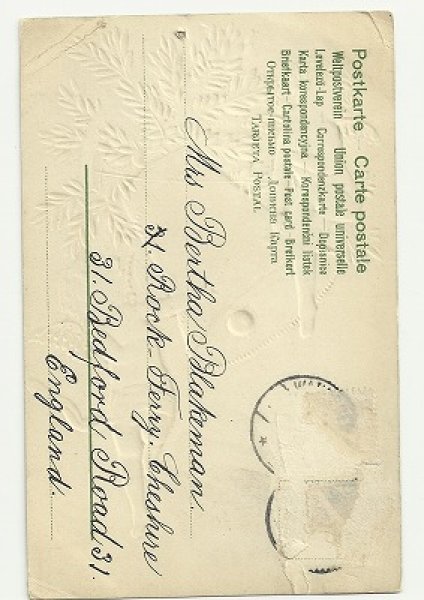 Postkarte – Carte postale
Weltpostverein Union postale universelle
Levelező-Lap Correspondenzkarte – Dopisnice
Karta korespondencyjna – Korespondenční lístek
Briefkaart – Cartolina postale – Post card – Brefkort
Открытое письмо
TARJETA POSTAL
Mrs Bertha Blakeman.
Rock-Ferry. Cheshire
31. Bedford Road 31.
England.